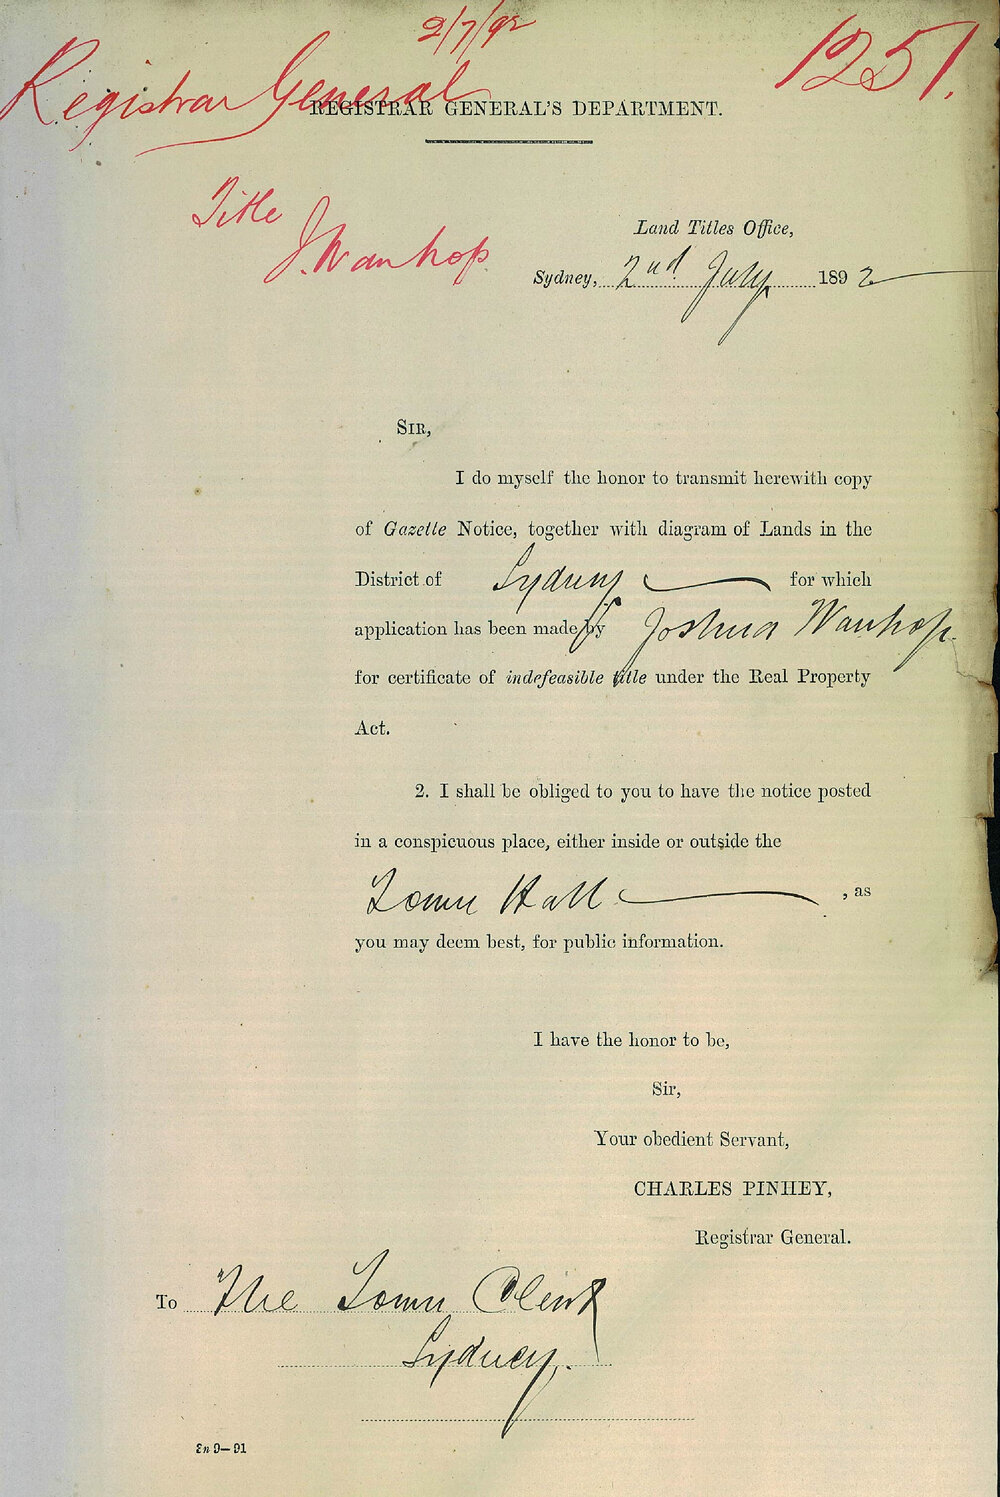 2/7/92
1251.
Registrar General
REGISTRAR GENERAL'S DEPARTMENT.
Title
J. Wanhop
Land Titles Office,
Sydney, 2nd July 1892
SIR,
I do myself the honor to transmit herewith copy
of Gazette Notice, together with diagram of Lands in the
District of Sydney for which
application has been made by Joshua Wanhop
for certificate of indefeasible title under the Real Property
Act.
2. I shall be obliged to you to have the notice posted
in a conspicuous place, either inside or outside the
Town Hall, as
you may deem best, for public information.
I have the honor to be,
Sir,
Your obedient Servant,
CHARLES PINHEY,
Registrar General.
To The Town Clerk
Sydney.
3n 9—91